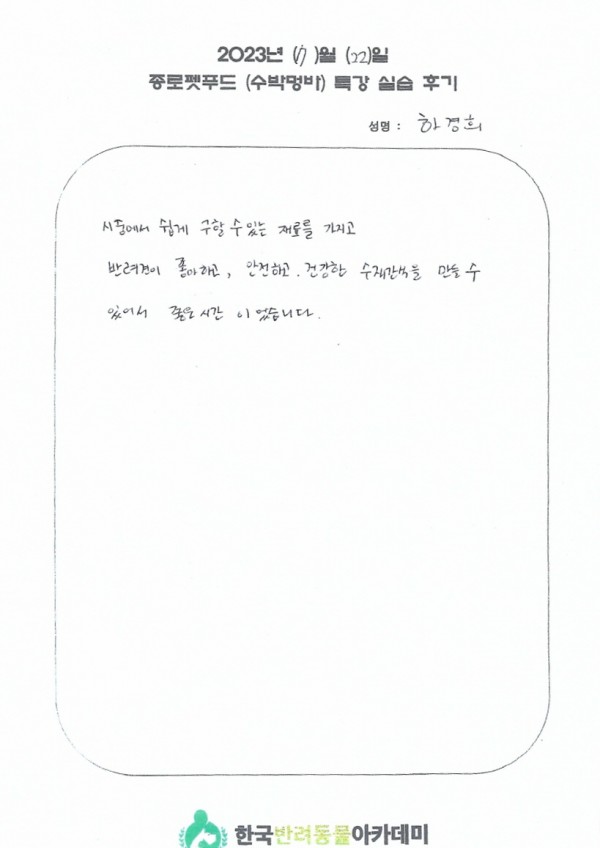 2023년 (7)월 (22)일
종로펫푸드 (수박멍바) 특강 실습 후기
성명 : 하경희
시중에서 쉽게 구할 수 있는 재료를 가지고
반려견이 좋아하고, 안전하고. 건강한 수제간식을 만들 수
있어서 좋은 시간 이었습니다.
한국반려동물아카데미